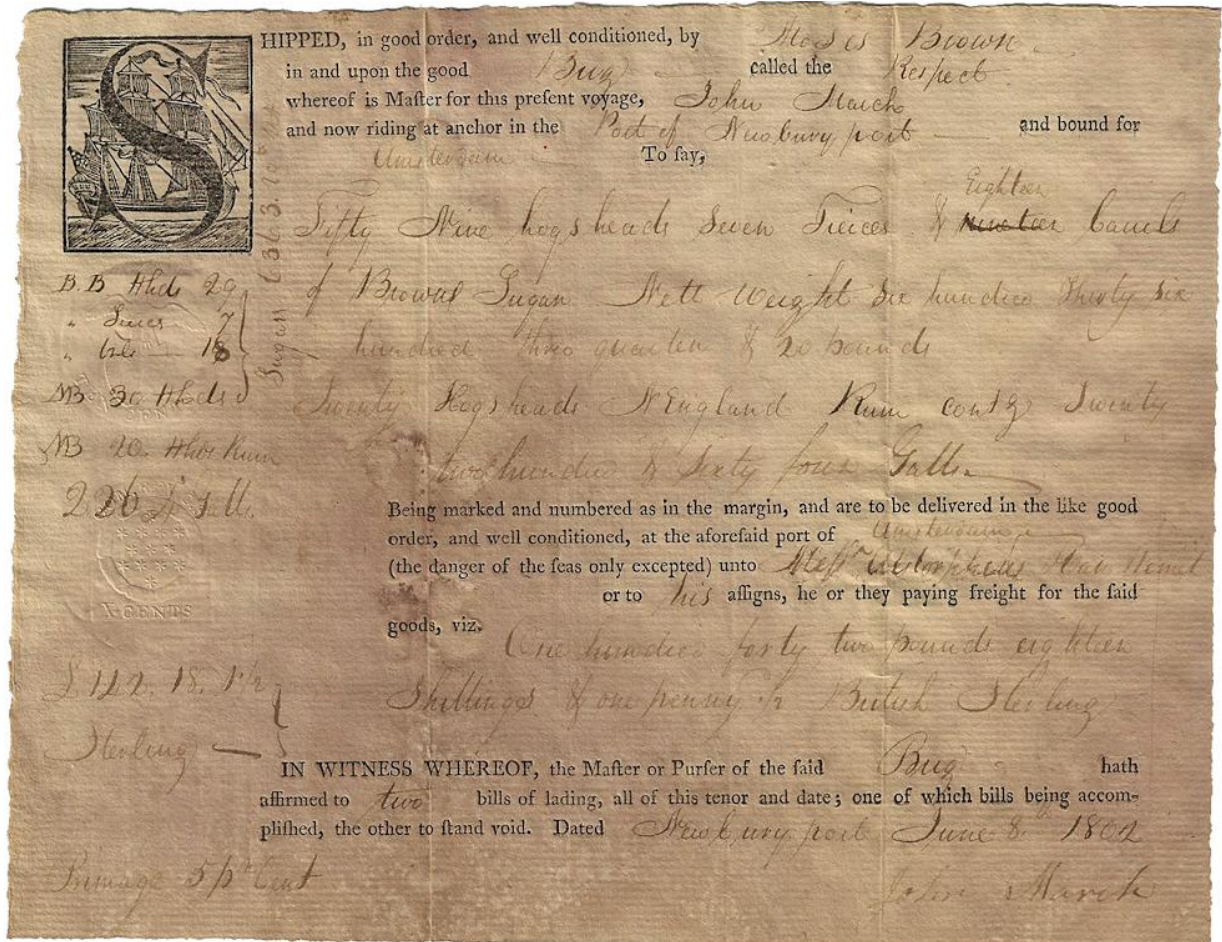 SHIPPED, in good order, and well conditioned, by Moses Brown
in and upon the good Brig called the Respect
whereof is Maſter for this preſent voyage, John March
and now riding at anchor in the Port of Newbury port and bound for
Amsterdam To ſay,
Eighteen
Fifty Nine hogsheads Seven Tierces & nineteen barrels
of Brown Sugar Nett Weight Six hundred Thirty Six
hundred three quarters & 20 pounds
Twenty Hogsheads N England Rum Twenty
two hundred & Sixty four Galls
B.B Hhds 29
" 7
" brls 18
MB 30 Hhds
Sugar
MB 20 Hhds Rum
2264 Galls
Being marked and numbered as in the margin, and are to be delivered in the like good
order, and well conditioned, at the aforeſaid port of Amsterdam
(the danger of the ſeas only excepted) unto Meſſrs
or to his aſſigns, he or they paying freight for the ſaid
goods, viz. One hundred forty two pounds eighteen
Shillings & one penny ½ British Sterling
£ 142. 18. 1½
Sterling
X CENTS
IN WITNESS WHEREOF, the Maſter or Purſer of the ſaid Brig hath
affirmed to two bills of lading, all of this tenor and date; one of which bills being accom-
pliſhed, the other to ſtand void. Dated Newbury port June 8 1802
Primage 5 pr Cent
John March